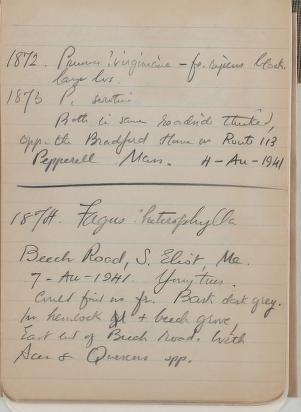 1872. Prunus virginiana - fr. ripens black
large lvs.
1873 P. serotina
Both in same roadside thicket,
opp. the Bradford House on Route 113
Pepperell Mass. 4-Au-1941
1874. Fagus heterophylla
Beech Road, S. Eliot, Me.
7-Au-1941. Young trees.
Could find no fr. Bark dark grey.
In hemlock + beech grove,
East end of Beech Road. With
Acer & Quercus spp.